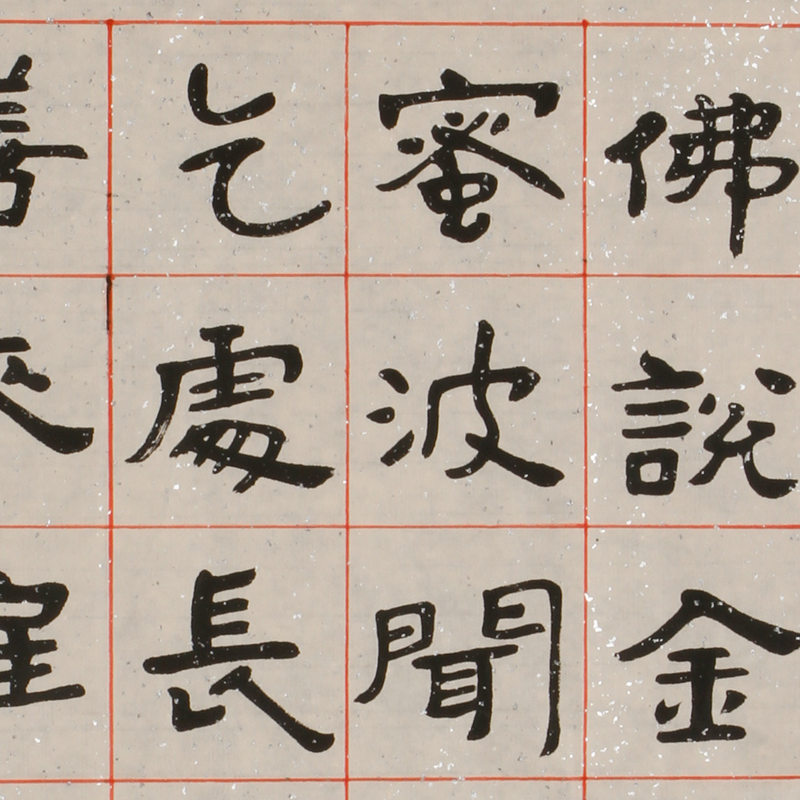 佛說金
蜜波聞
乞處長
善